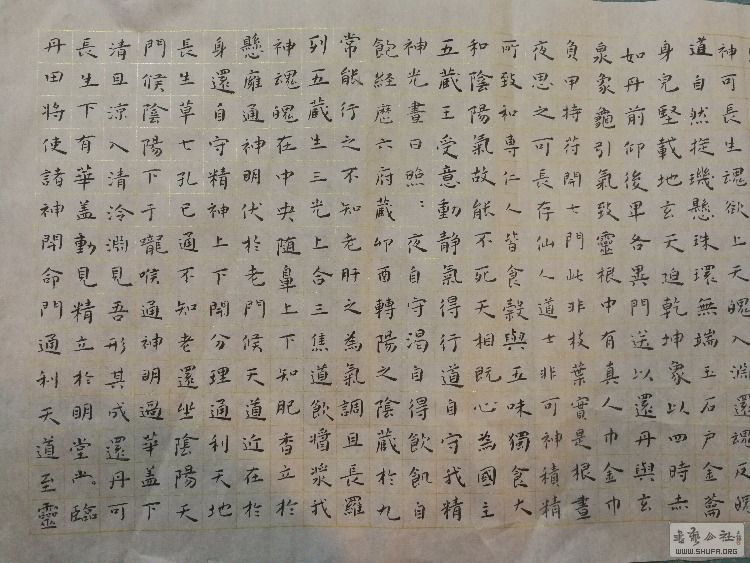 神可長生魂欲上天魄入淵還魂反魄
道自然旋璣懸珠環無端玉石戶金籥
身完堅載地玄天迫乾坤象以四時赤
如丹前仰後卑各異門送以還丹與玄
泉象龜引氣致靈根中有真人巾金巾
負甲持苻開七門此非枝葉實是根晝
夜思之可長存仙人道士非可神積精
所致和專仁人皆食穀與五味獨食大
和陰陽氣故能不死天相既心為國主
五藏王受意動靜氣得行道自守我精
神光晝日照：夜自守渴自得飲飢自
飽經歷六府藏卯酉轉陽之陰藏於九
常能行之不知老肝之為氣調且長羅
列五藏生三光上合三焦道飲醬漿我
神魂魄在中央隨鼻上下知肥香立於
懸廱通神明伏於老門候天道近在於
身還自守精神上下開分理通利天地
長生草七孔已通不知老還坐陰陽天
門候陰陽下于嚨喉通神明過華蓋下
清且涼入清泠淵見吾形其成還丹可
長生下有華蓋動見精立於明堂臨
丹田將使諸神開命門通利天道至靈
書藝公社
WWW.SHUFA.ORG